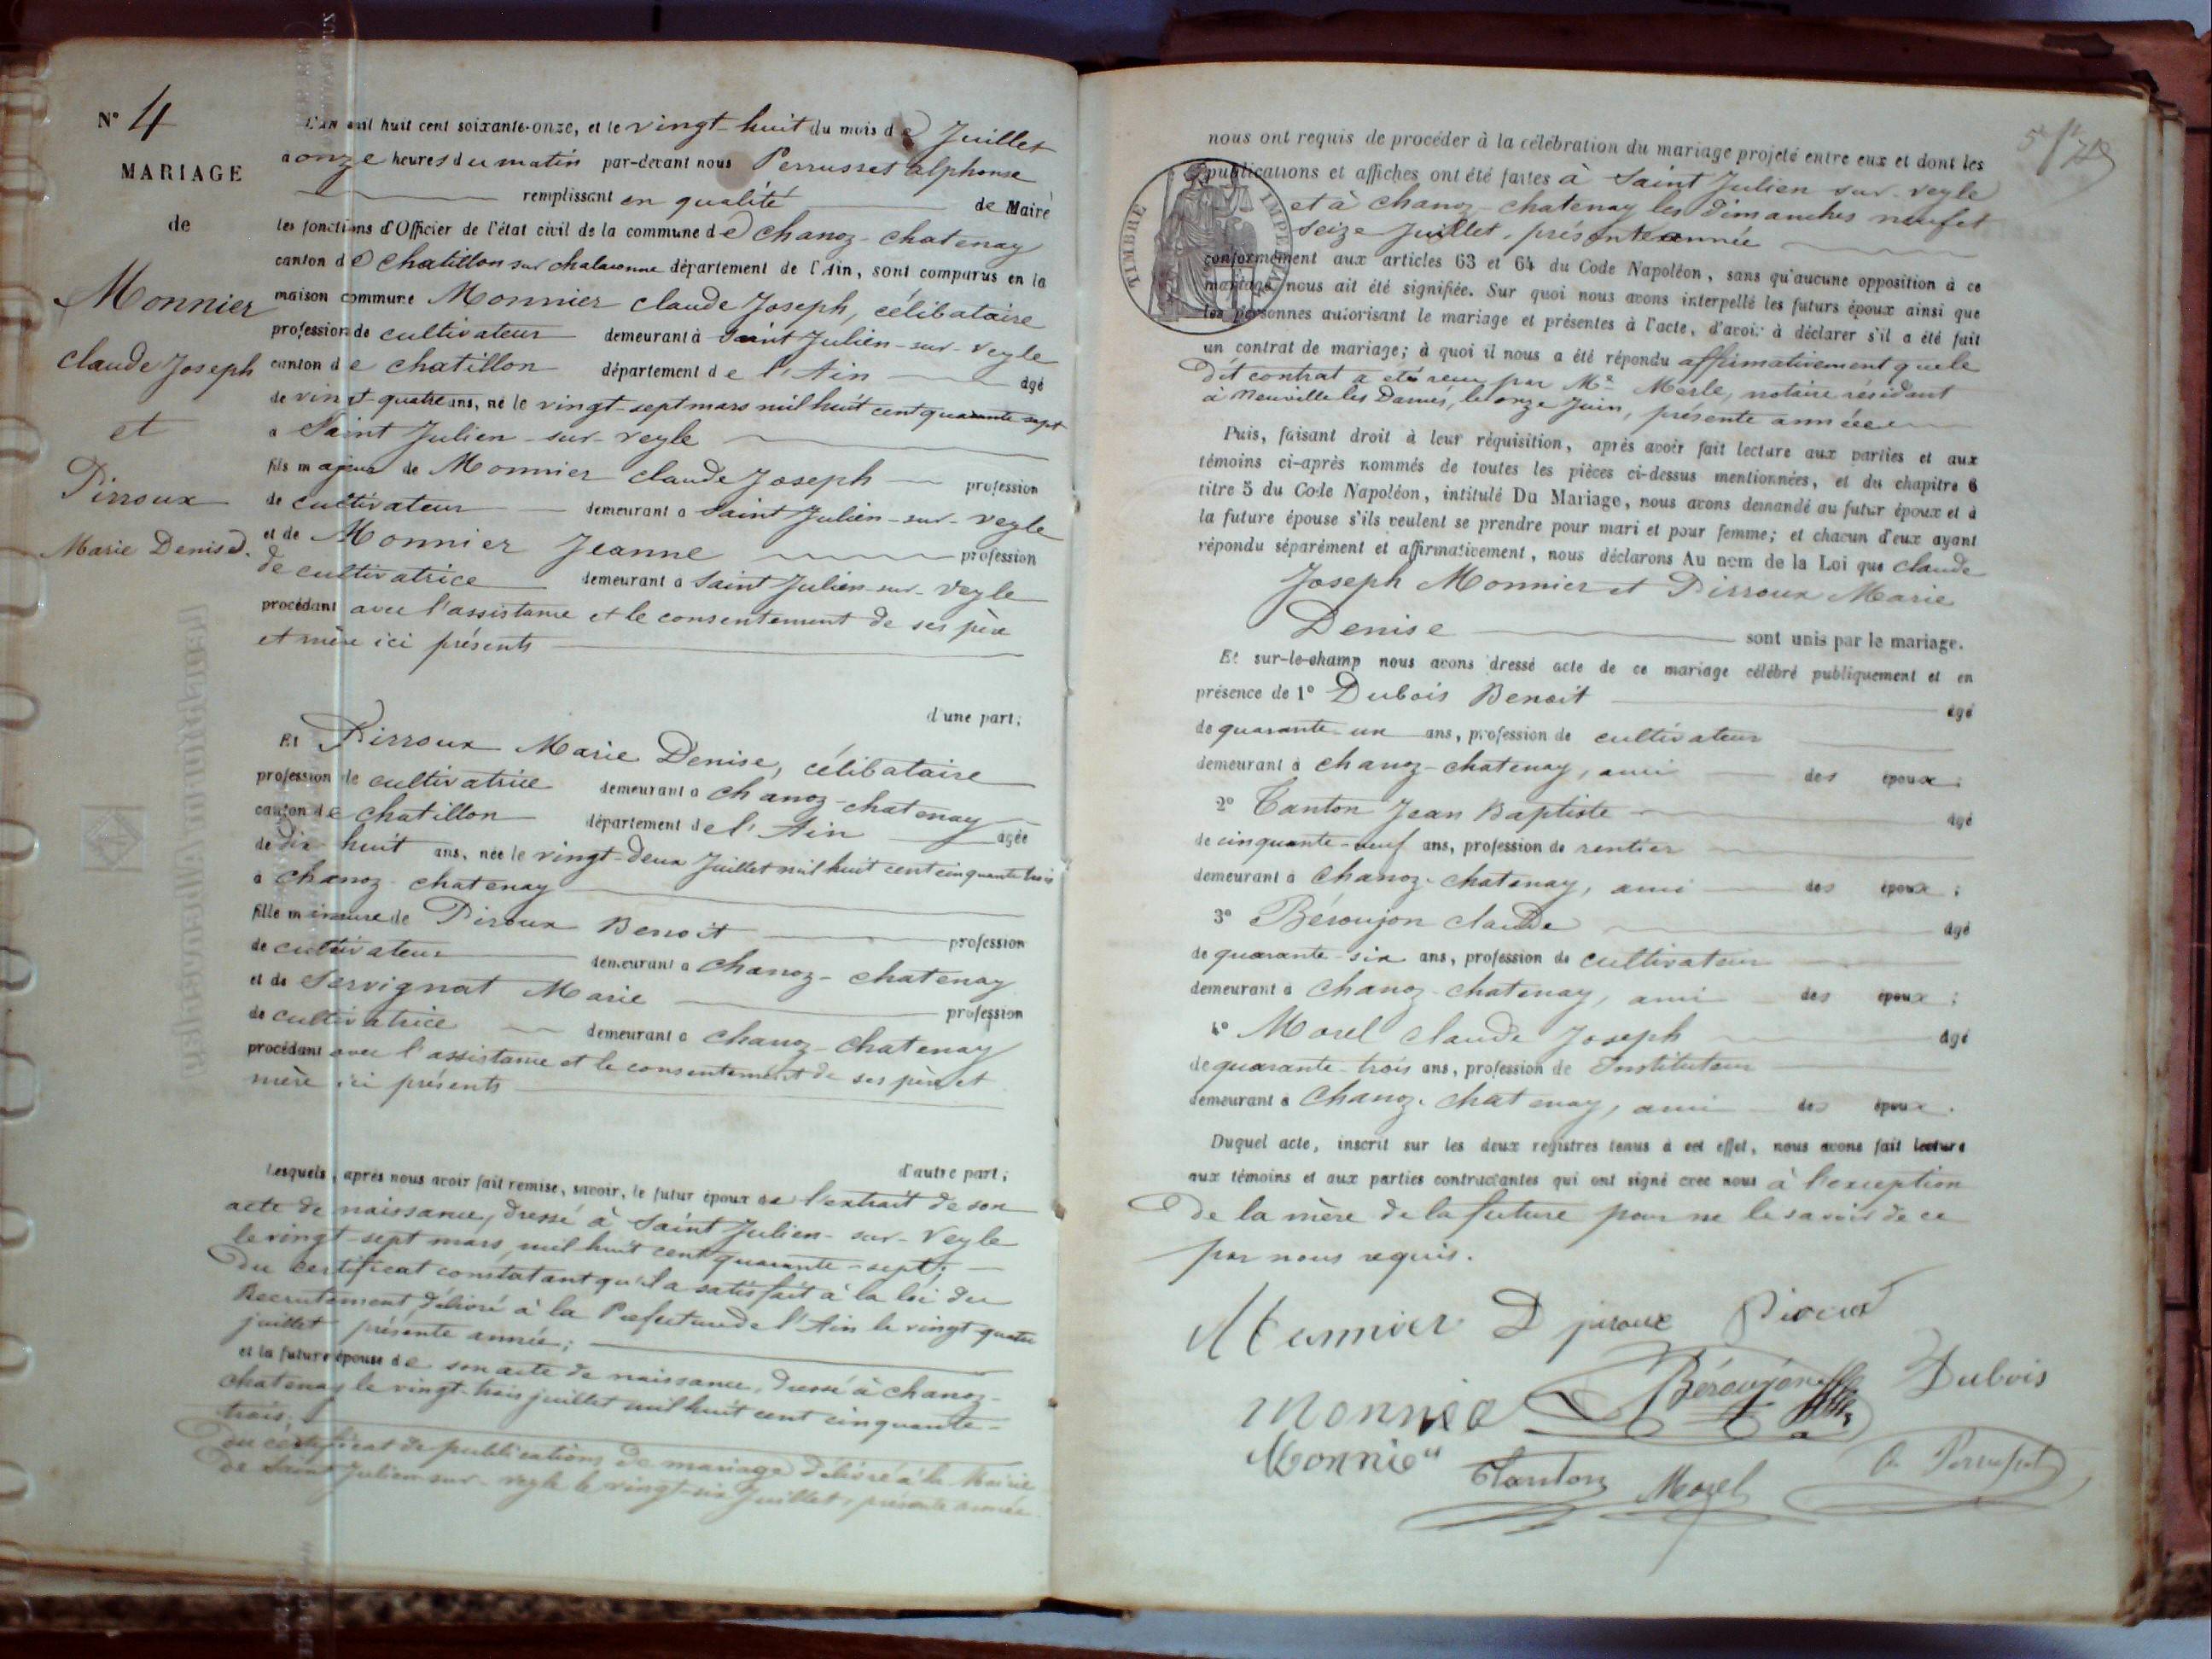 N° 4
MARIAGE
de
Monnier
Claude Joseph
et
Pirroux
Marie Denise.
L'an mil huit cent soixante-onze, et le vingt-huit du mois de Juillet
a onze heures du matin par-devant nous Perrusset alphonse
remplissant en qualité de Maire
les fonctions d'Officier de l'état civil de la commune de Chanoz-chatenay
canton de Chatillon sur chalaronne département de l'Ain, sont comparus en la
maison commune Monnier claude Joseph, célibataire
profession de cultivateur demeurant à Saint Julien-sur-Veyle
canton de chatillon département de l'Ain âgé
de vingt-quatre ans, né le vingt-sept mars mil huit cent quarante sept
a Saint Julien-sur-veyle
fils majeur de Monnier claude Joseph profession
de cultivateur demeurant a Saint Julien-sur-veyle
et de Monnier Jeanne profession
de cultivatrice demeurant a Saint Julien-sur-Veyle
procédant avec l'assistance et le consentement de ses père
et mère ici présents
d'une part;
Et Pirroux Marie Denise, célibataire
profession de cultivatrice demeurant a chanoz-chatenay
canton de chatillon département de l'Ain agée
de dix-huit ans, née le vingt-deux Juillet mil huit cent cinquante trois
a chanoz-chatenay
fille mineure de Piroux Benoit profession
de cultivateur demeurant a chanoz-chatenay
et de Servignat Marie profession
de cultivatrice demeurant a chanoz-chatenay
procédant avec l'assistance et le consentement de ses père et
mère ici présents
d'autre part;
Lesquels, après nous avoir fait remise, savoir, le futur époux de l'extrait de son
acte de naissance, dressé à Saint Julien-sur-Veyle
le vingt-sept mars, mil huit cent quarante-sept;
Du certificat constatant qu'il a satisfait à la loi du
Recrutement, délivré à la Préfecture de l'Ain le vingt quatre
juillet présente année;
et la future épouse de son acte de naissance, dressé à chanoz-
chatenay le vingt-trois juillet mil huit cent cinquante-
trois;
du certificat de publications de mariage délivré à la Mairie
de Saint Julien-sur-veyle le vingt-six Juillet, présente année
nous ont requis de procéder à la célébration du mariage projeté entre eux et dont les
publications et affiches ont été faites à Saint Julien-sur-veyle
et à chanoz-chatenay les dimanches neuf et
seize Juillet, présente année
TIMBRE IMPERIAL
conformément aux articles 63 et 64 du Code Napoléon, sans qu'aucune opposition à ce
mariage nous ait été signifiée. Sur quoi nous avons interpellé les futurs époux ainsi que
les personnes autorisant le mariage et présentes à l'acte, d'avoir à déclarer s'il a été fait
un contrat de mariage; à quoi il nous a été répondu affirmativement que le
dit contrat a été reçu par Me Merle, notaire résidant
à Neuville les Dames, le onze Juin, présente année
Puis, faisant droit à leur réquisition, après avoir fait lecture aux parties et aux
témoins ci-après nommés de toutes les pièces ci-dessus mentionnées, et du chapitre 6
titre 5 du Code Napoléon, intitulé Du Mariage, nous avons demandé au futur époux et à
la future épouse s'ils veulent se prendre pour mari et pour femme; et chacun d'eux ayant
répondu séparément et affirmativement, nous déclarons Au nom de la Loi que claude
Joseph Monnier et Pirroux Marie
Denise sont unis par le mariage.
Et sur-le-champ nous avons dressé acte de ce mariage célébré publiquement et en
présence de 1° Dubois Benoit âgé
de quarante-un ans, profession de cultivateur
demeurant à chanoz-chatenay, ami des époux;
2° Tanton Jean Baptiste âgé
de cinquante-neuf ans, profession de rentier
demeurant à Chanoz-chatenay, ami des époux;
3° Béroujon claude âgé
de quarante-six ans, profession de cultivateur
demeurant à chanoz-chatenay, ami des époux;
4° Morel claude Joseph âgé
de quarante-trois ans, profession de Instituteur
demeurant à Chanoz-chatenay, ami des époux.
Duquel acte, inscrit sur les deux registres tenus à cet effet, nous avons fait lecture
aux témoins et aux parties contractantes qui ont signé avec nous à l'exception
De la mère de la future pour ne le savoir de ce
par nous requis.
Monnier D piroux Piroux
Monnier Béroujon Dubois
Monnier Tanton Morel A. Perrusset